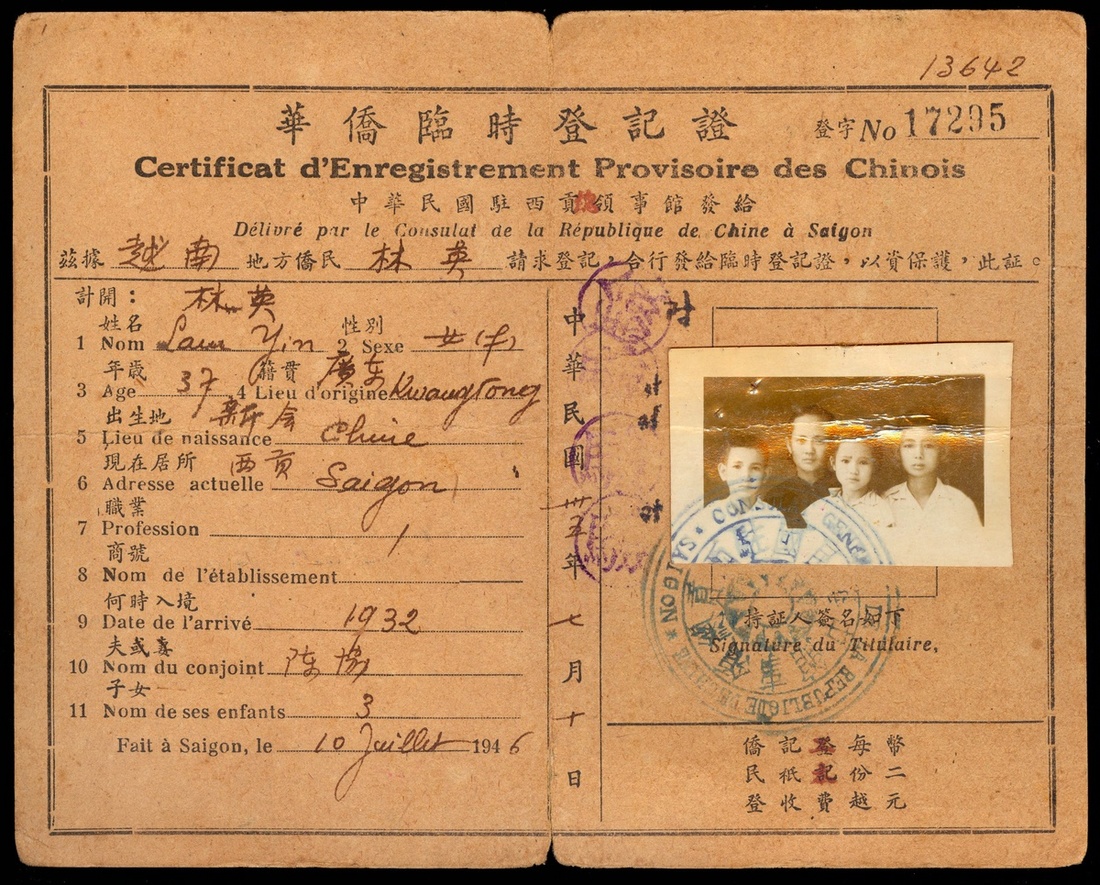 13642
華僑臨時登記證
登字 No 17295
Certificat d'Enregistrement Provisoire des Chinois
中華民國駐西貢領事館發給
Délivré par le Consulat de la République de Chine à Saigon
茲據 越南 地方僑民 林英 請求登記，合行發給臨時登記證，以資保護，此証。
計開： 林英
姓名 性別
1 Nom Lam Yin 2 Sexe 女(f)
年歲 籍貫 廣东
3 Age 37 4 Lieu d'origine Kwangtong
出生地 新会
5 Lieu de naissance Chine
現在居所 西貢
6 Adresse actuelle Saigon
職業
7 Profession
商號
8 Nom de l'établissement
何時入境
9 Date de l'arrivé 1932
夫或妻
10 Nom du conjoint 陈
子女
11 Nom de ses enfants 3
Fait à Saigon, le 10 Juillet 1946
中華民國卅五年七月十日
持証人簽名如下
Signature du Titulaire,
僑記登每幣
民祇記份二
登收費越元